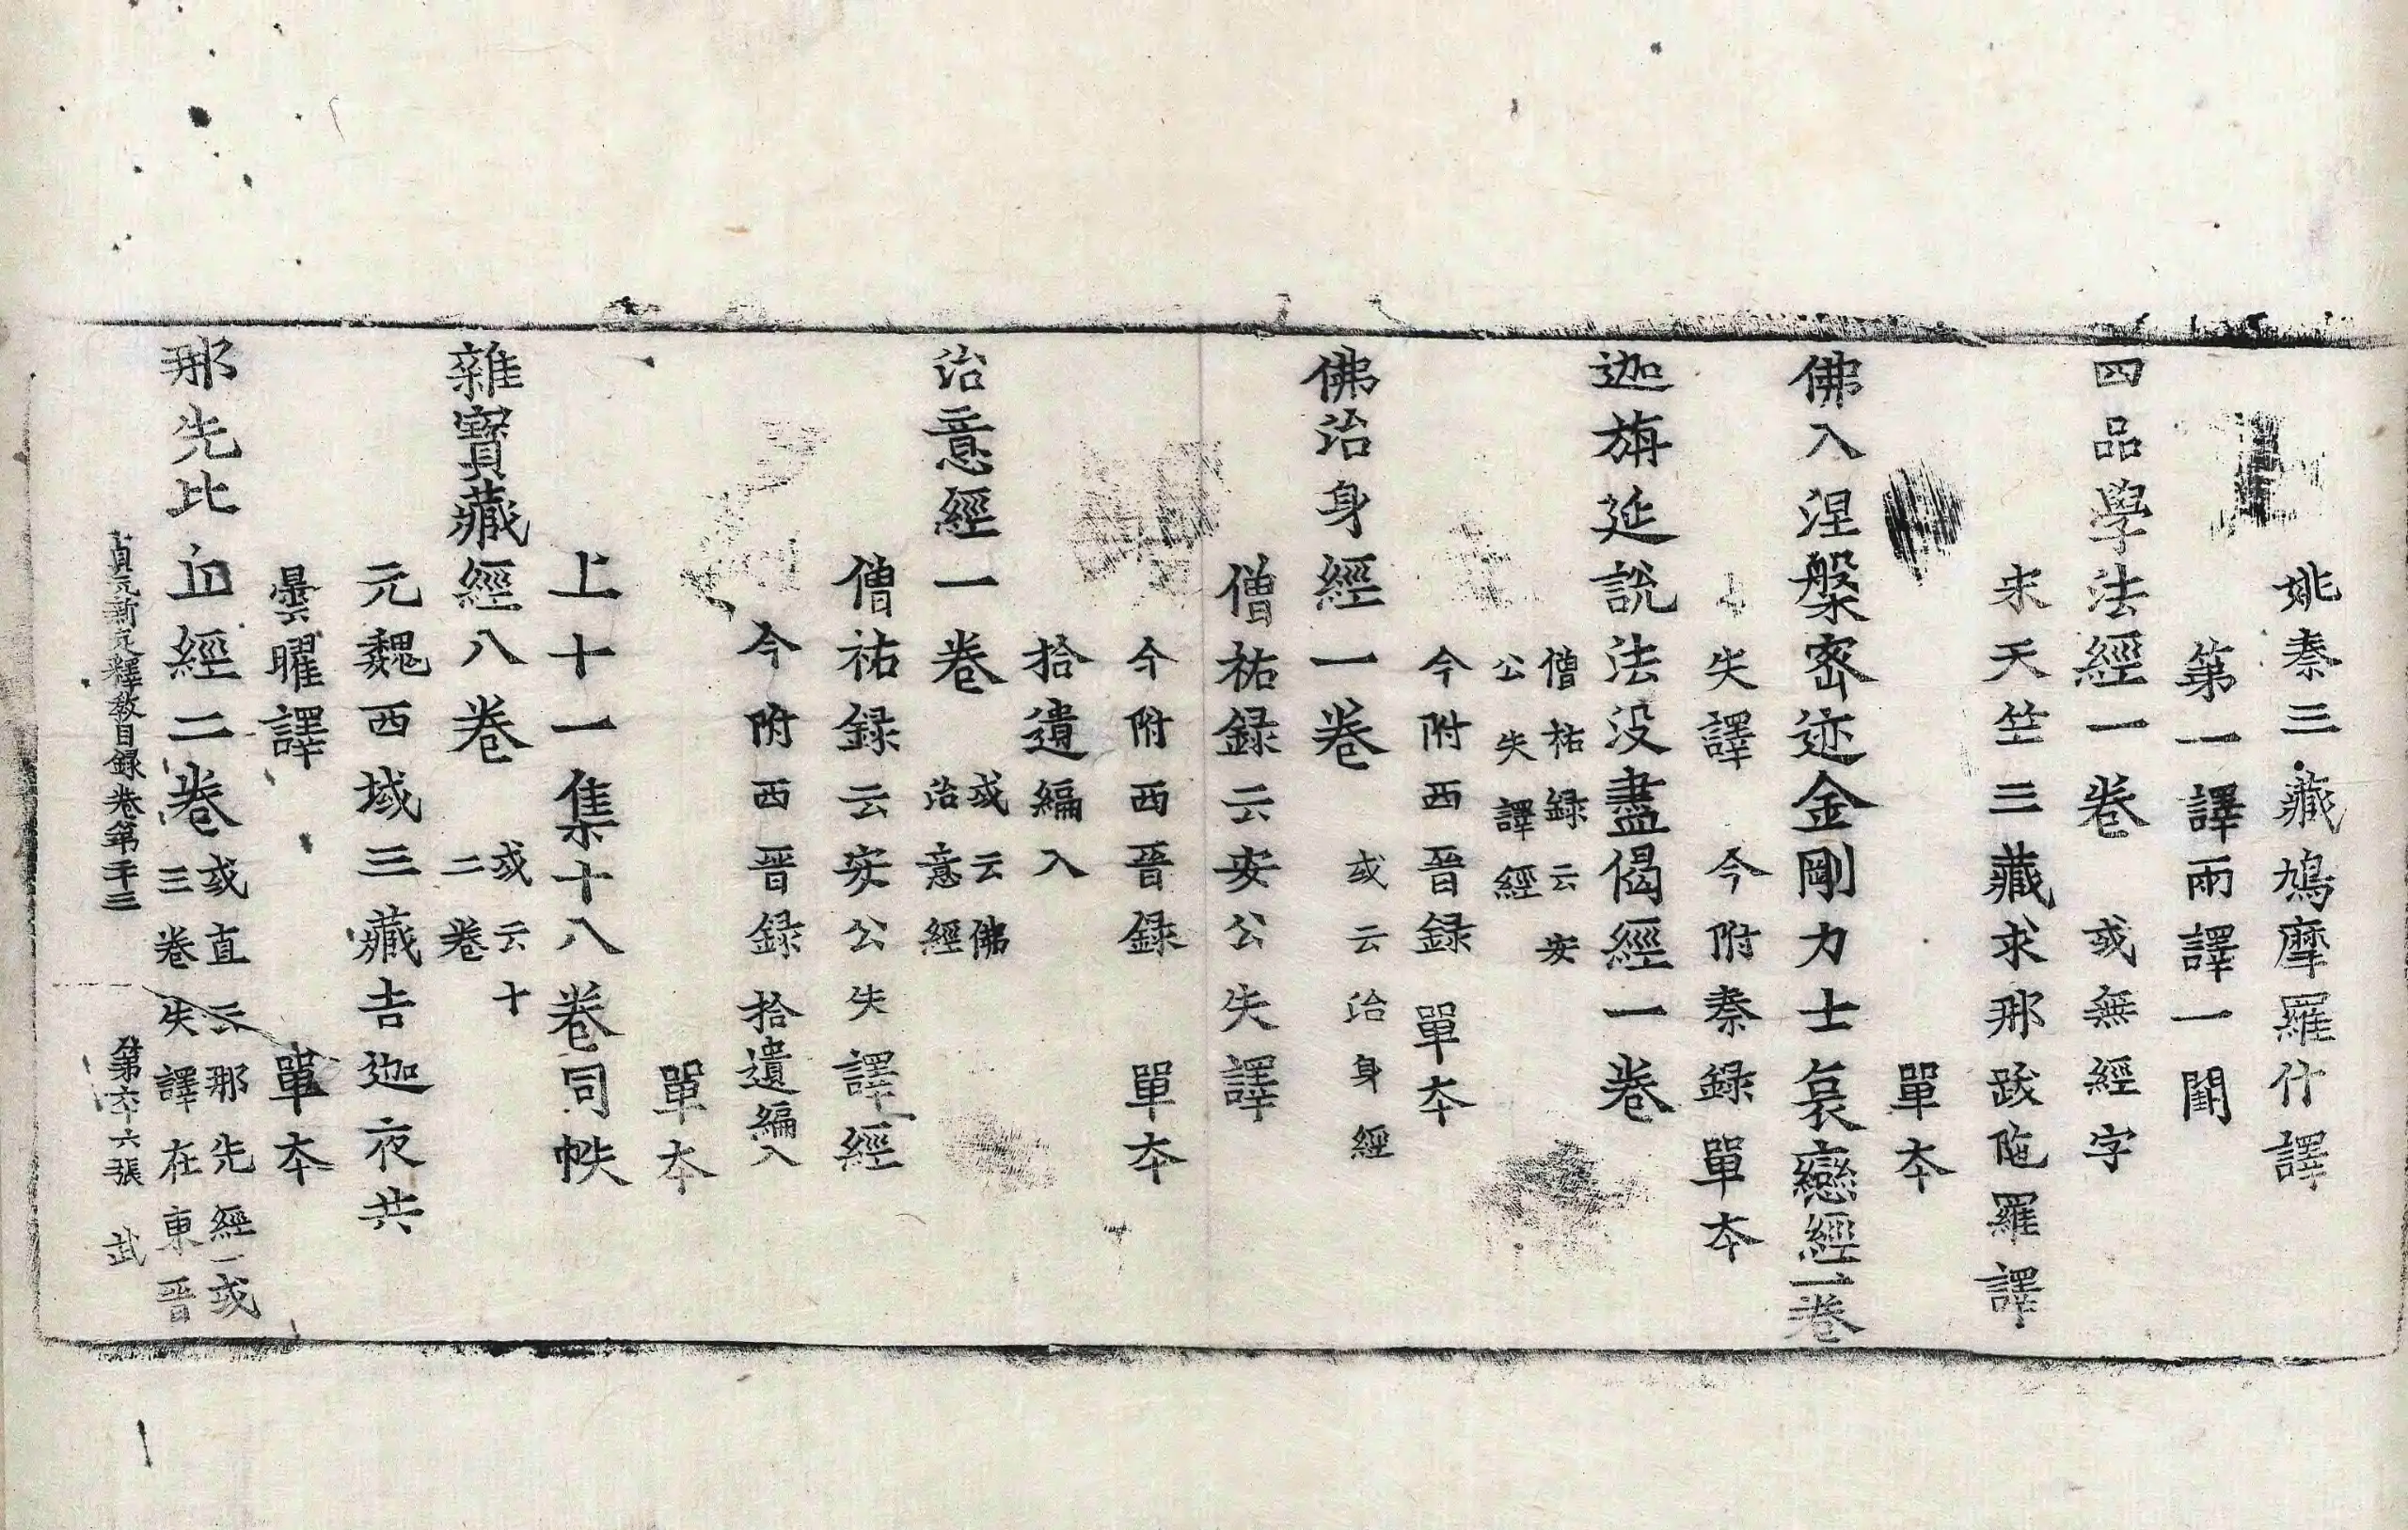 姚秦三藏鳩摩羅什譯
第一譯兩譯一闕
四品學法經一卷 或無經字
宋天竺三藏求那跋陁羅譯
單夲
佛入涅槃密迹金剛力士哀戀經一卷
失譯 今附秦録單夲
迦旃延說法没盡偈經一卷
僧祐録云安
公失譯經
今附西晉録 單夲
佛治身經一卷 或云治身經
僧祐録云安公失譯
今附西晉録 單夲
拾遺編入
治意經一卷 或云佛
治意經
僧祐録云安公失譯經
今附西晉録 拾遺編入
單夲
上十一集十八卷同帙
雜寶藏經八卷 或云十
二卷
元魏西域三藏吉迦夜共
曇曜譯 單夲
那先比丘經二卷 或直云那先經一或
三卷失譯在東晉
貞元新定釋教目録卷第二十三 第六張 武